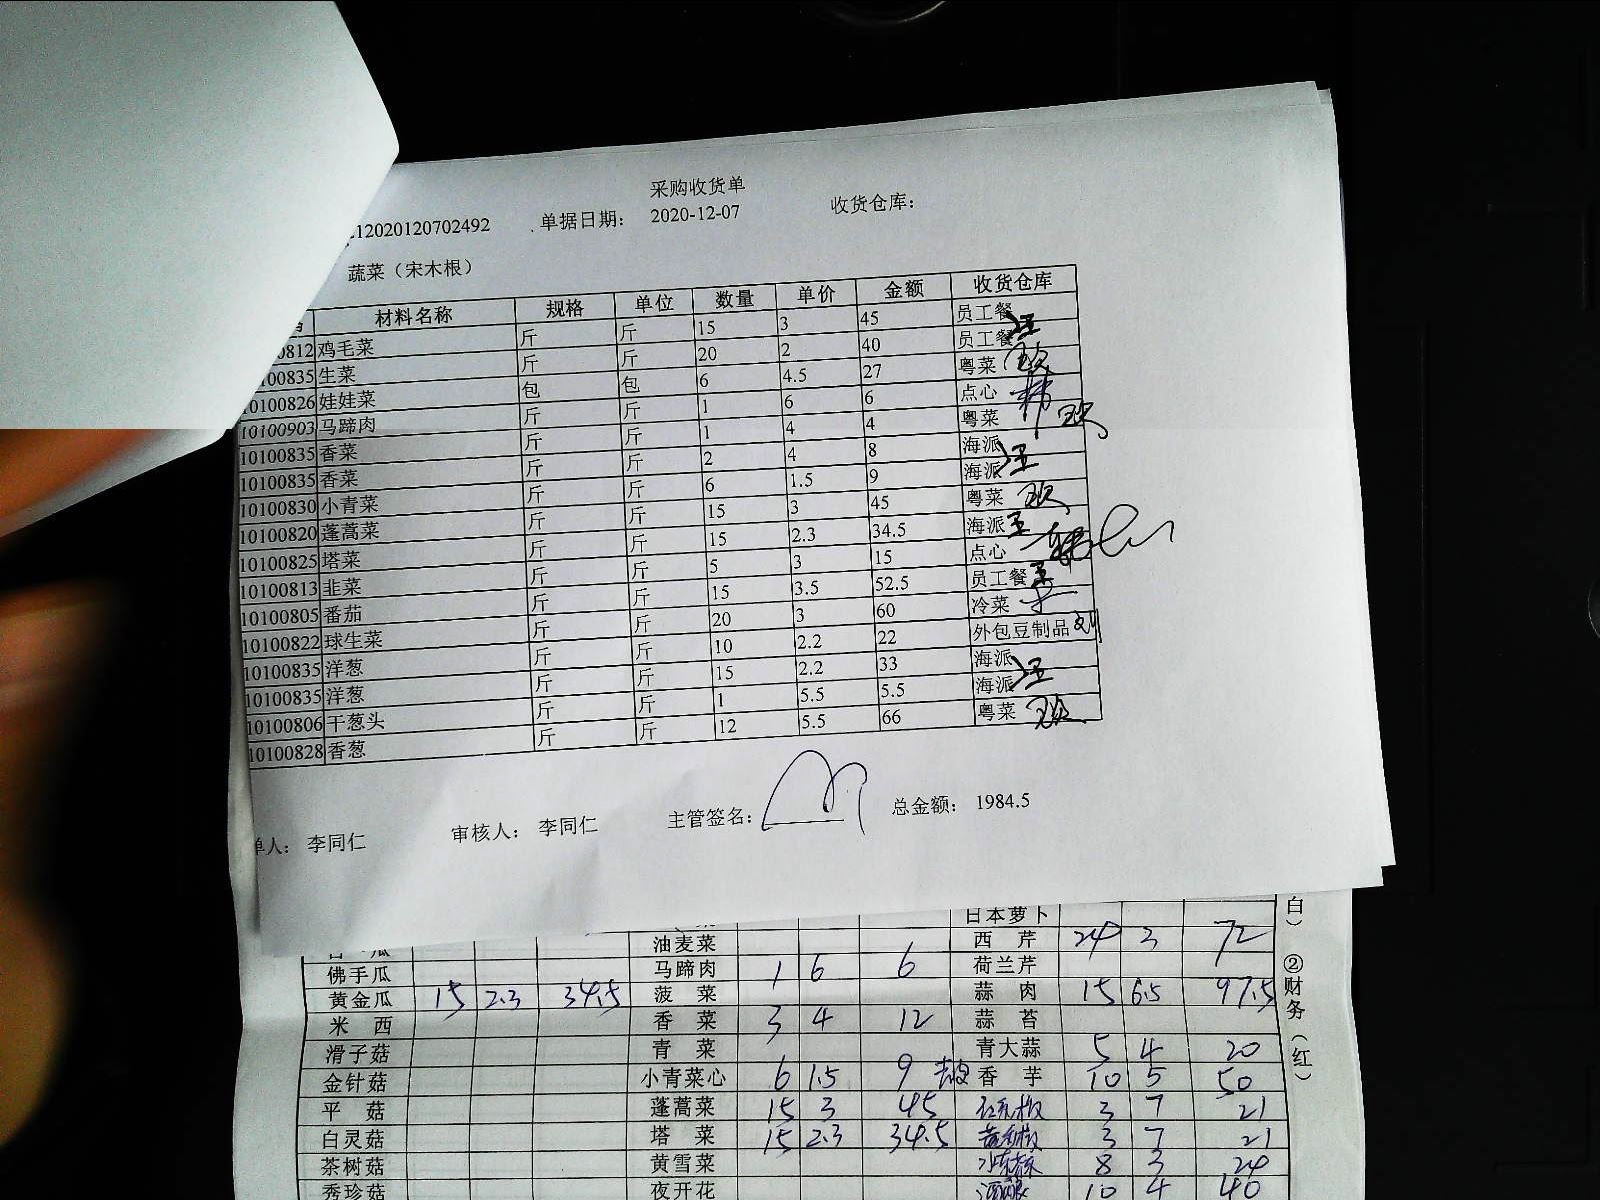 采购收货单
12020120702492 单据日期： 2020-12-07 收货仓库：
蔬菜（宋木根）
材料名称 规格 单位 数量 单价 金额 收货仓库
0812 鸡毛菜 斤 斤 15 3 45 员工餐
100835 生菜 斤 斤 20 2 40 员工餐
10100826 娃娃菜 包 包 6 4.5 27 粤菜
10100903 马蹄肉 斤 斤 1 6 6 点心
10100835 香菜 斤 斤 1 4 4 粤菜
10100835 香菜 斤 斤 2 4 8 海派
10100830 小青菜 斤 斤 6 1.5 9 海派
10100820 蓬蒿菜 斤 斤 15 3 45 粤菜
10100825 塔菜 斤 斤 15 2.3 34.5 海派
10100813 韭菜 斤 斤 5 3 15 点心
10100805 番茄 斤 斤 15 3.5 52.5 员工餐
10100822 球生菜 斤 斤 20 3 60 冷菜
10100835 洋葱 斤 斤 10 2.2 22 外包豆制品
10100835 洋葱 斤 斤 15 2.2 33 海派
10100806 干葱头 斤 斤 1 5.5 5.5 海派
10100828 香葱 斤 斤 12 5.5 66 粤菜
单人： 李同仁 审核人： 李同仁 主管签名： 总金额： 1984.5
日本萝卜
瓜 油麦菜 西芹 24 3 72
佛手瓜 马蹄肉 1 6 6 荷兰芹
黄金瓜 15 2.3 34.5 菠菜 蒜肉 15 6.5 97.5
米西 香菜 3 4 12 蒜苔
滑子菇 青菜 青大蒜 5 4 20
金针菇 小青菜心 6 1.5 9 香芋 10 5 50
平菇 蓬蒿菜 15 3 45 3 7 21
白灵菇 塔菜 15 2.3 34.5 3 7 21
茶树菇 黄雪菜 8 3 24
秀珍菇 夜开花 酒酿 10 4 40
白）
②财务（红）